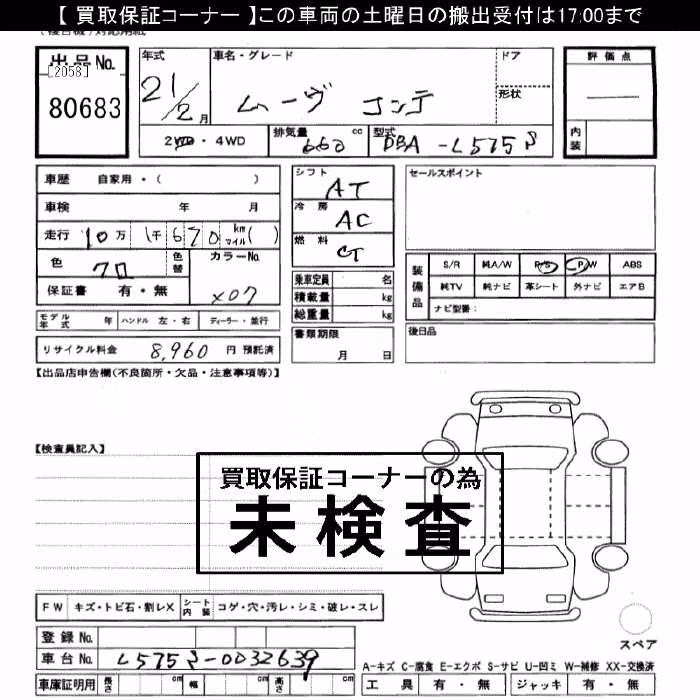 【 買取保証コーナー 】この車両の土曜日の搬出受付は17:00まで
出品No.
[2058]
80683
年式
21/2月
車名・グレード
ムーヴ コンテ
ドア
形状
評価点
内装
2WD・4WD
排気量 660 cc
型式 DBA-L575S
車歴 自家用・( )
車検 年 月
走行 10万 1千 670 km マイル( )
色 クロ
色替
カラーNo. X07
保証書 有・無
モデル年式 年 ハンドル 左・右 ディーラー・並行
リサイクル料金 8,960 円 預託済
シフト AT
冷房 AC
燃料
乗車定員 名
積載量 kg
総重量 kg
書類期限
月 日
セールスポイント
装備品
S/R 純A/W P/S P/W ABS
純TV 純ナビ 革シート 外ナビ エアB
ナビ型番:
後日品
【出品店申告欄(不良箇所・欠品・注意事項等)】
【検査員記入】
買取保証コーナーの為
未検査
FW キズ・トビ石・割レX シート内装 コゲ・穴・汚レ・シミ・破レ・スレ
登録No.
車台No. L575S-0032639
車庫証明用 長さ cm 幅 cm 高さ cm
スペア
A-キズ C-腐食 E-エクボ S-サビ U-凹ミ W-補修 XX-交換済
工具 有・無 ジャッキ 有・無